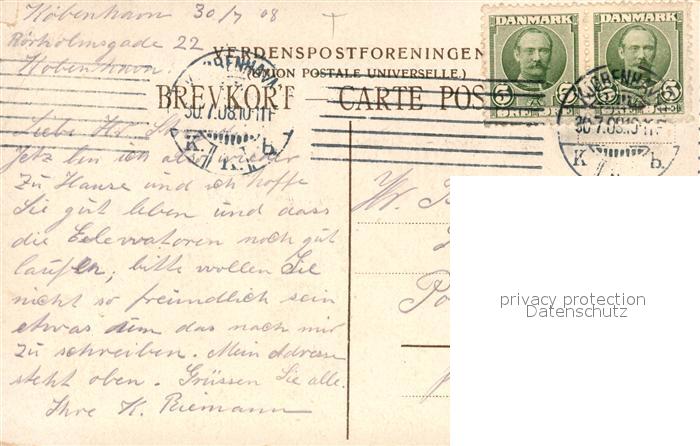 København 30/7 08
Rörholmsgade 22
København.
VERDENSPOSTFORENINGEN
(UNION POSTALE UNIVERSELLE.)
BREVKORT CARTE POS
DANMARK DANMARK
5 5 5
ØRE
KJØBENHAVN
30.7.08.10-11F
K. K. b.
KJØBENHAVN
30.7.08.10-11F
K b.
Liebe Hr.
Jetz bin ich also wieder
zu Hause und ich hoffe
Sie gut leben und dass
die Elevvatoren noch gut
laufen; bitte wollen Sie
nicht so freundlich sein
etwas um das nach mir
zu schreiben. Mein Adresse
steht oben. Grüssen Sie alle.
Ihre K. Riemann
Hr.
privacy protection
Datenschutz